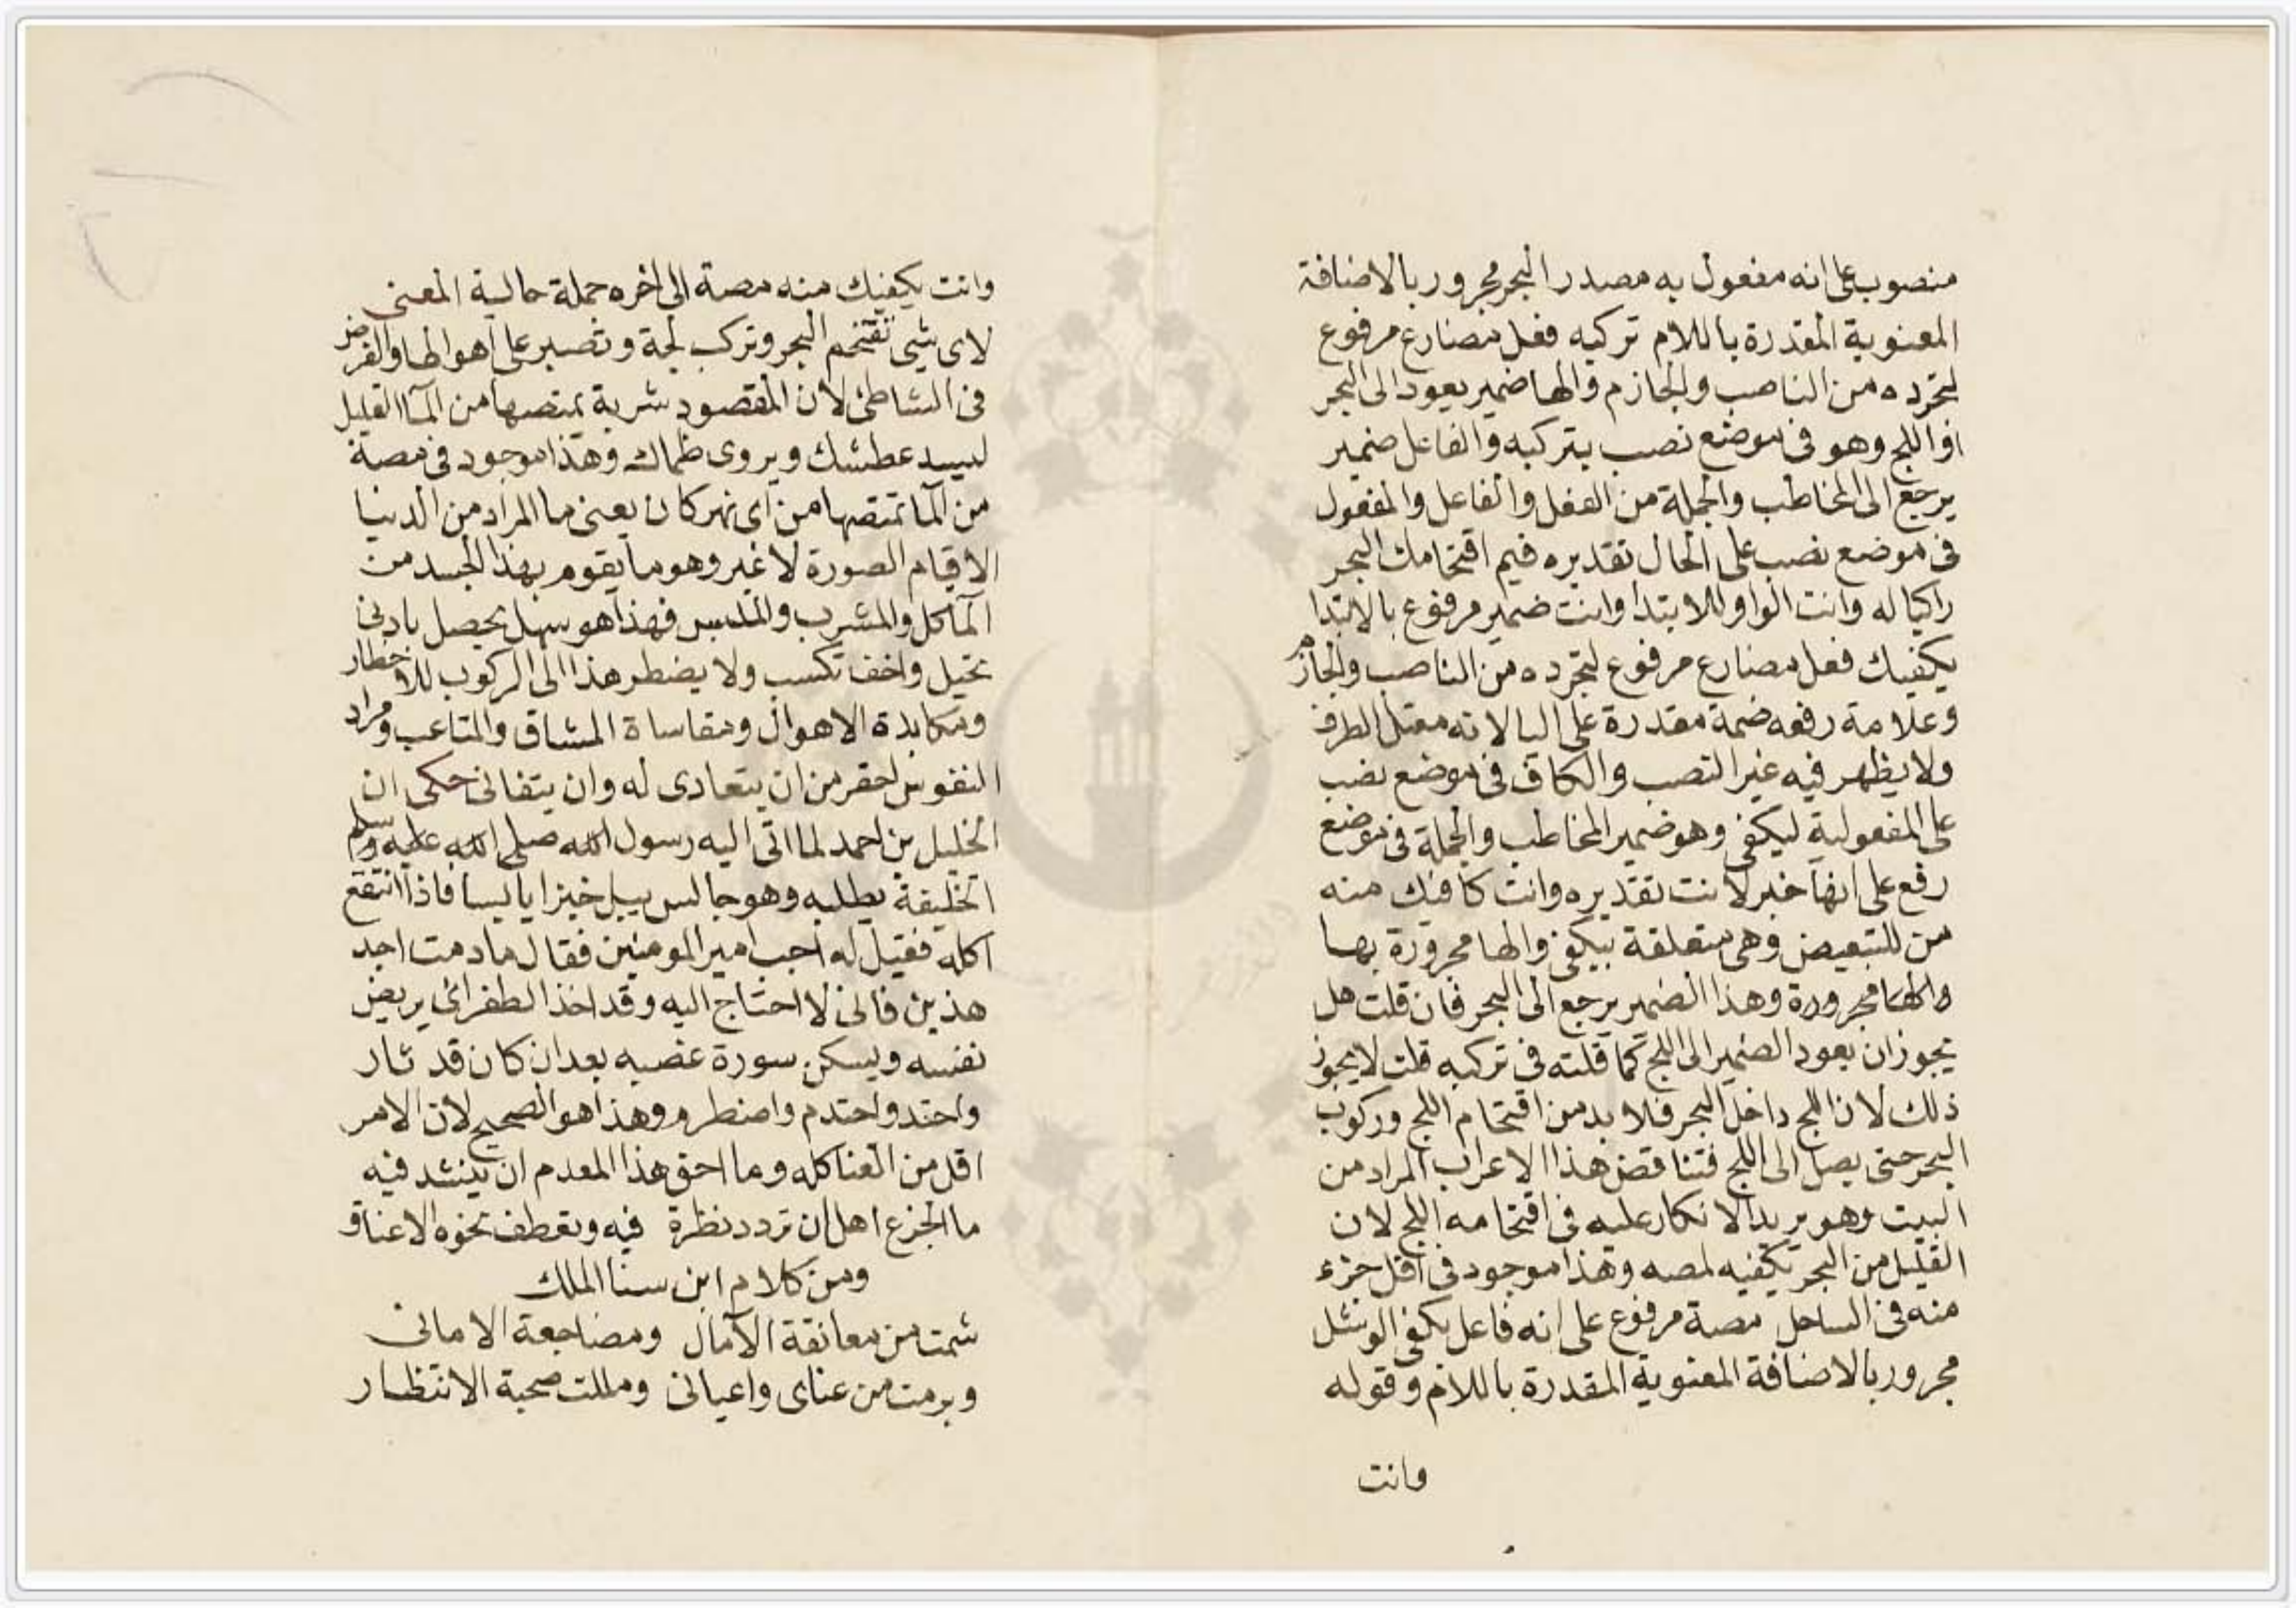 منصوب على انه مفعول به مصدر البحر مجرور بالاضافة
المعنوية المقدرة باللام تركبه فعل مضارع مرفوع
لتجرده من الناصب والجازم والها ضمير يعود الى البحر
او اللج وهو فى موضع نصب بتركبه والفاعل ضمير
يرجع الى المخاطب والجملة من الفعل والفاعل والمفعول
فى موضع نصب على الحال تقديره فيم اقتحامك البحر
راكبا له وانت الواو للابتدا وانت ضمير مرفوع بالابتدا
يكفيك فعل مضارع مرفوع لتجرده من الناصب والجازم
وعلامة رفعه ضمة مقدرة على اليا لانه معتل الطرف
ولا يظهر فيه غير النصب والكاف فى موضع نصب
على المفعولية ليكفى وهو ضمير المخاطب والجملة فى موضع
رفع على انها خبر لانت تقديره وانت كافيك منه
من للتبعيض وهى متعلقة بيكفى والها مجرورة بها
والها مجرورة وهذا الضمير يرجع الى البحر فان قلت هل
يجوز ان يعود الضمير الى اللج كما قلته فى تركبه قلت لا يجوز
ذلك لان اللج داخل البحر فلا بد من اقتحام اللج وركوب
البحر حتى يصل الى اللج فتناقض هذا الاعراب المراد من
البيت وهو يريد الانكار عليه فى اقتحامه اللج لان
القليل من البحر يكفيه لمصه وهذا موجود فى اقل جزء
منه فى الساحل مصة مرفوع على انه فاعل يكفى الوشل
مجرور بالاضافة المعنوية المقدرة باللام وقوله
وانت
وانت يكفيك منه مصة الى اخره جملة حالية المعنى
لاى شى تقتحم البحر وتركب لجة وتصبر على اهوالها والغرض
فى الشاطئ لان المقصود شربة تمتصها من الما القليل
ليسد عطشك ويروى ظماك وهذا موجود فى مصة
من الما تمتصها من اى نهر كان يعنى ما المراد من الدنيا
الا قيام الصورة لا غير وهو ما يقوم بهذا الجسد من
الماكل والمشرب والملبس فهذا هو سهل يحصل بادنى
تحيل واخف تكسب ولا يضطر هذا الى الركوب للاخطار
ومكابدة الاهوال ومقاساة المشاق والمتاعب ومراد
النفوس احقر من ان يتعادى له وان يتفانى حكى ان
الخليل بن احمد لما اتى اليه رسول الله صلى الله عليه وسلم
الخليفة يطلبه وهو جالس يبل خبزا يابسا فاذا انتقع
اكله فقيل له اجب امير المومنين فقال ما دمت اجد
هذين فانى لا احتاج اليه وقد اخذ الطغرائى يريض
نفسه ويسكن سورة غضبه بعد ان كان قد ثار
واحتد واحتدم واضطرم وهذا هو الصحيح لان الامر
اقل من العنا كله وما احق هذا المعدم ان ينشد فيه
ما الجزع اهل ان تردد نظرة فيه وتعطف نحوه الاعناق
ومن كلام ابن سنا الملك
سئمت من معانقة الآمال ومضاجعة الامانى
وبرمت من عناى واعيانى ومللت صحبة الانتظار